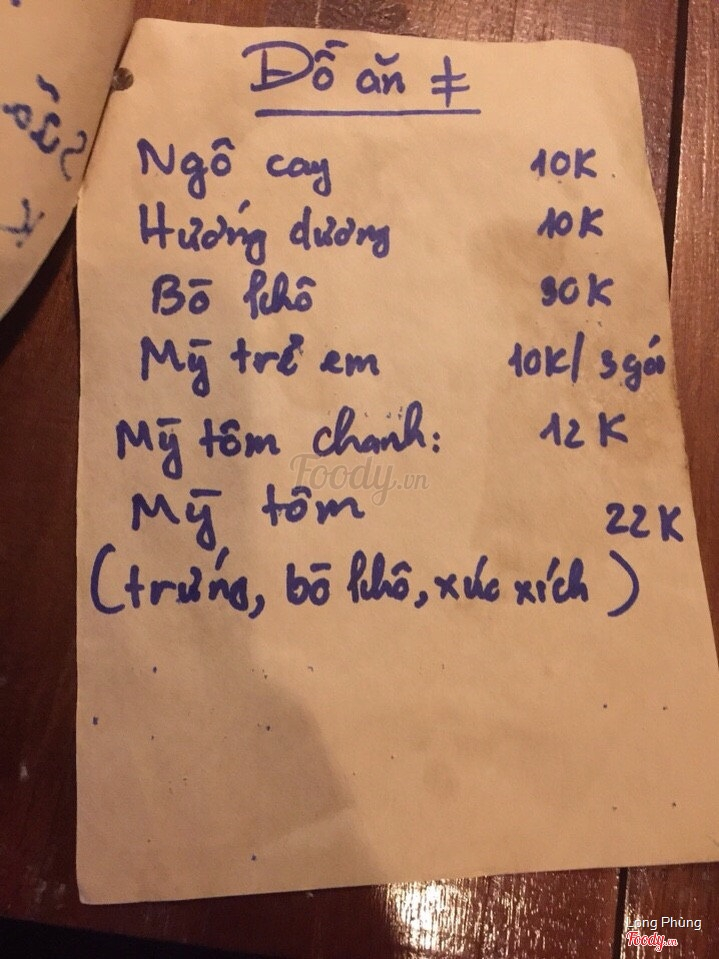 Đồ ăn ≠
Ngô cay 10K
Hướng dương 10K
Bò khô 30K
Mỹ trẻ em 10K/ 3 gói
Mỹ tôm chanh: 12K
Mỹ tôm 22K
(trứng, bò khô, xúc xích)
Foody.vn
Long Phùng
Foody.vn